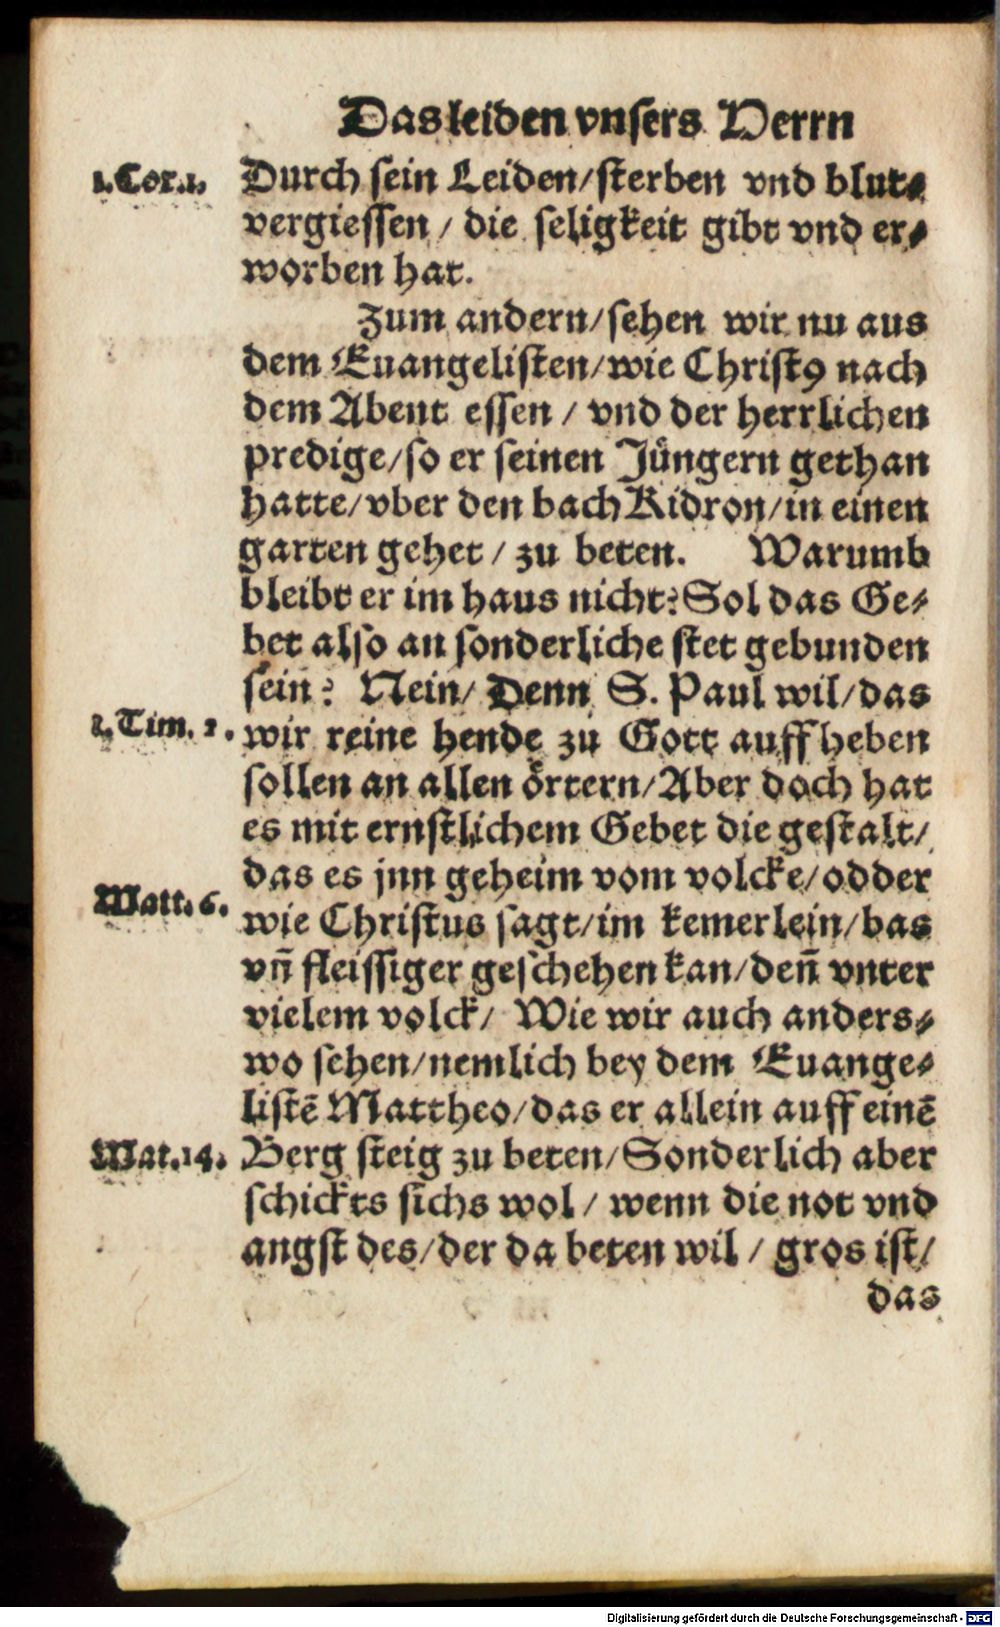 Das leiden vnsers Herrn
1. Cor. 1. Durch sein Leiden/sterben vnd blut⸗
vergiessen / die seligkeit gibt vnd er⸗
worben hat.
Zum andern/sehen wir nu aus
dem Euangelisten/wie Christ9 nach
dem Abent essen / vnd der herrlichen
predige/so er seinen Jüngern gethan
hatte/vber den bach Kidron/in einen
garten gehet / zu beten. Warumb
bleibt er im haus nicht? Sol das Ge⸗
bet also an sonderliche stet gebunden
sein? Nein/ Denn S. Paul wil/das
1. Tim. 2. wir reine hende zu Gott auff heben
sollen an allen örtern/Aber doch hat
es mit ernstlichem Gebet die gestalt/
das es jnn geheim vom volcke/odder
Matt. 6. wie Christus sagt/im kemerlein/bas
vn̄ fleissiger geschehen kan/den̄ vnter
vielem volck/ Wie wir auch anders⸗
wo sehen/nemlich bey dem Euange⸗
listē Mattheo/das er allein auff einē
Mat. 14. Berg steig zu beten/Sonderlich aber
schickts sichs wol / wenn die not vnd
angst des/der da beten wil / gros ist/
das
Digitalisierung gefördert durch die Deutsche Forschungsgemeinschaft - DFG